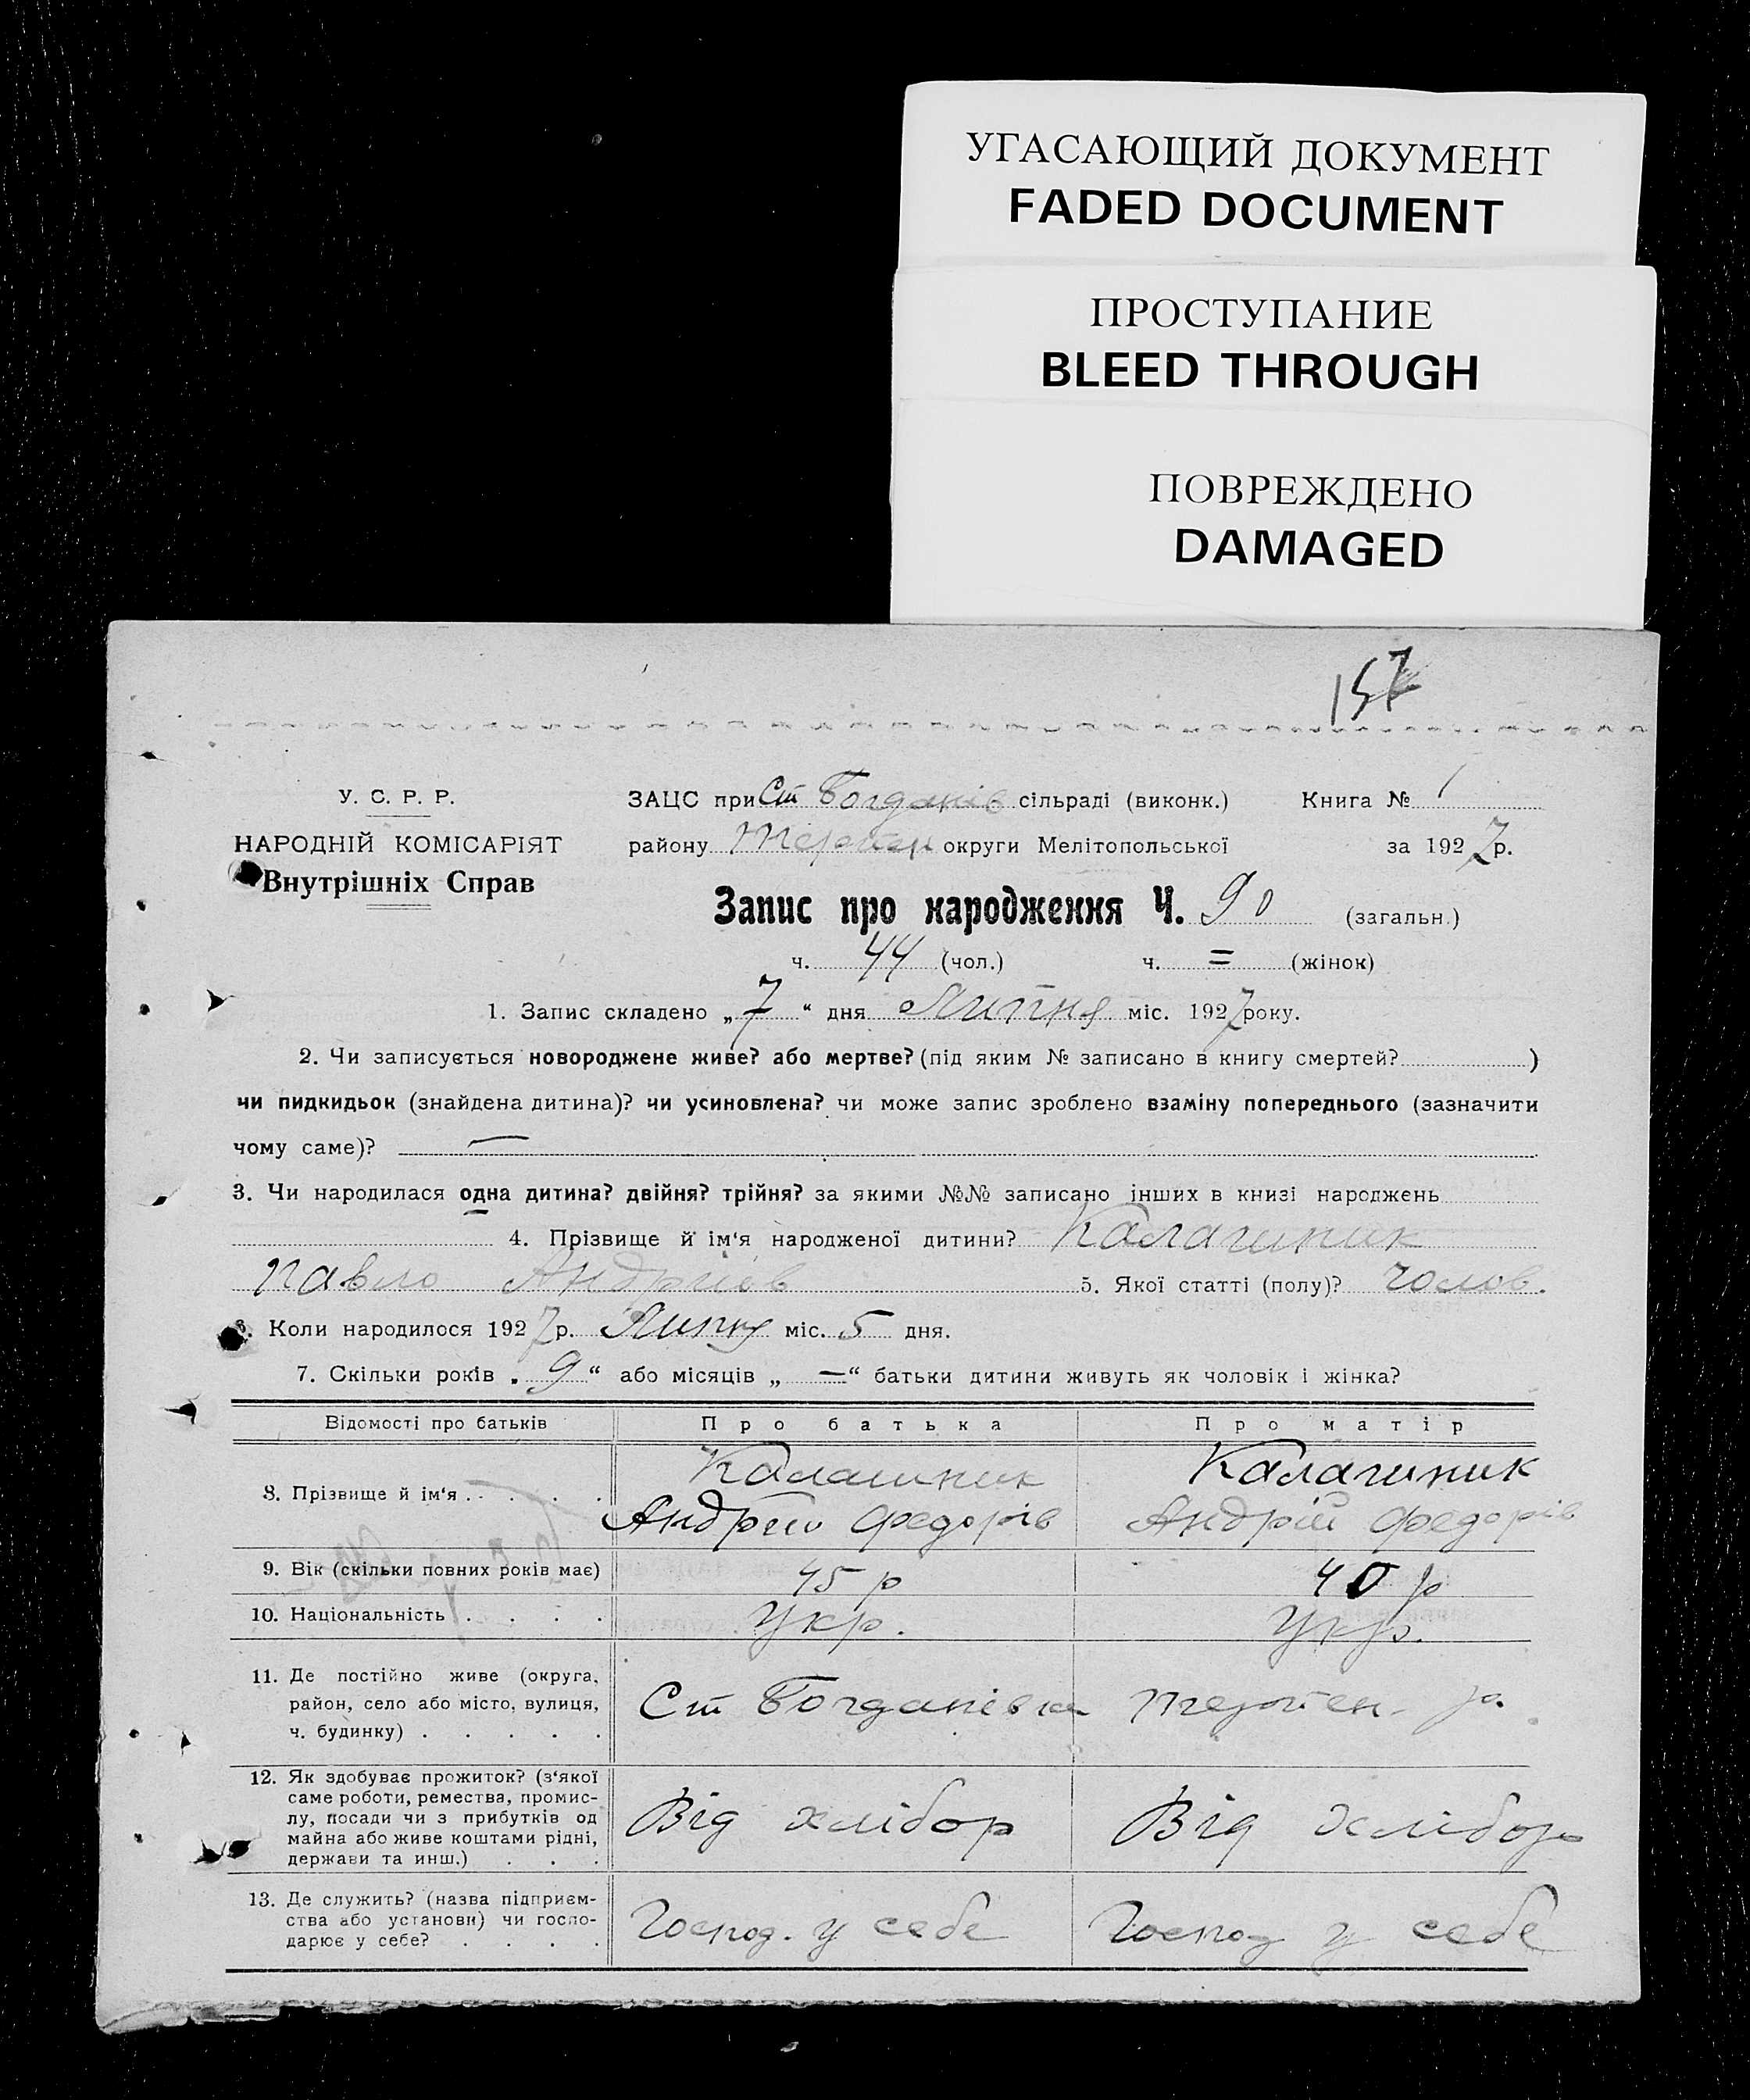 УГАСАЮЩИЙ ДОКУМЕНТ
FADED DOCUMENT
ПРОСТУПАНИЕ
BLEED THROUGH
ПОВРЕЖДЕНО
DAMAGED
157
У. С. Р. Р.
НАРОДНІЙ КОМІСАРІЯТ
Внутрішніх Справ
ЗАЦС при Ст Богданів сільраді (виконк.) Книга № 1
району Терпен округи Мелітопольської за 1927 р.
Запис про народження Ч. 90 (загальн.)
ч. 44 (чол.) ч. = (жінок)
1. Запис складено „7“ дня Липня міс. 1927 року.
2. Чи записується новороджене живе? або мертве? (під яким № записано в книгу смертей? )
чи пидкидьок (знайдена дитина)? чи усиновлена? чи може запис зроблено взаміну попереднього (зазначити
чому саме)? —
3. Чи народилася одна дитина? двійня? трійня? за якими №№ записано інших в книзі народжень
4. Прізвище й ім‘я народженої дитини? Калашник
Павло Андріїв 5. Якої статті (полу)? Чолов.
6. Коли народилося 1927 р. Липня міс. 5 дня.
7. Скільки років „9“ або місяців „—“ батьки дитини живуть як чоловік і жінка?
Відомості про батьків Про батька Про матір
8. Прізвище й ім‘я . . . . .
Калашник Калашник
Андрій Федорів Андрій Федорів
9. Вік (скільки повних років має) 45 р 40 р
10. Національність . . . . Укр. Укр.
11. Де постійно живе (округа,
район, село або місто, вулиця,
ч. будинку) . . . . .
Ст Богданівка Терпен. р.
12. Як здобуває прожиток? (з‘якої
саме роботи, ремества, промис-
лу, посади чи з прибутків од
майна або живе коштами рідні,
держави та инш.) . . .
Від хлібор Від хлібор
13. Де служить? (назва підприєм-
ства або установи) чи госпо-
дарює у себе? . . . .
Господ. у себе Господ у себе